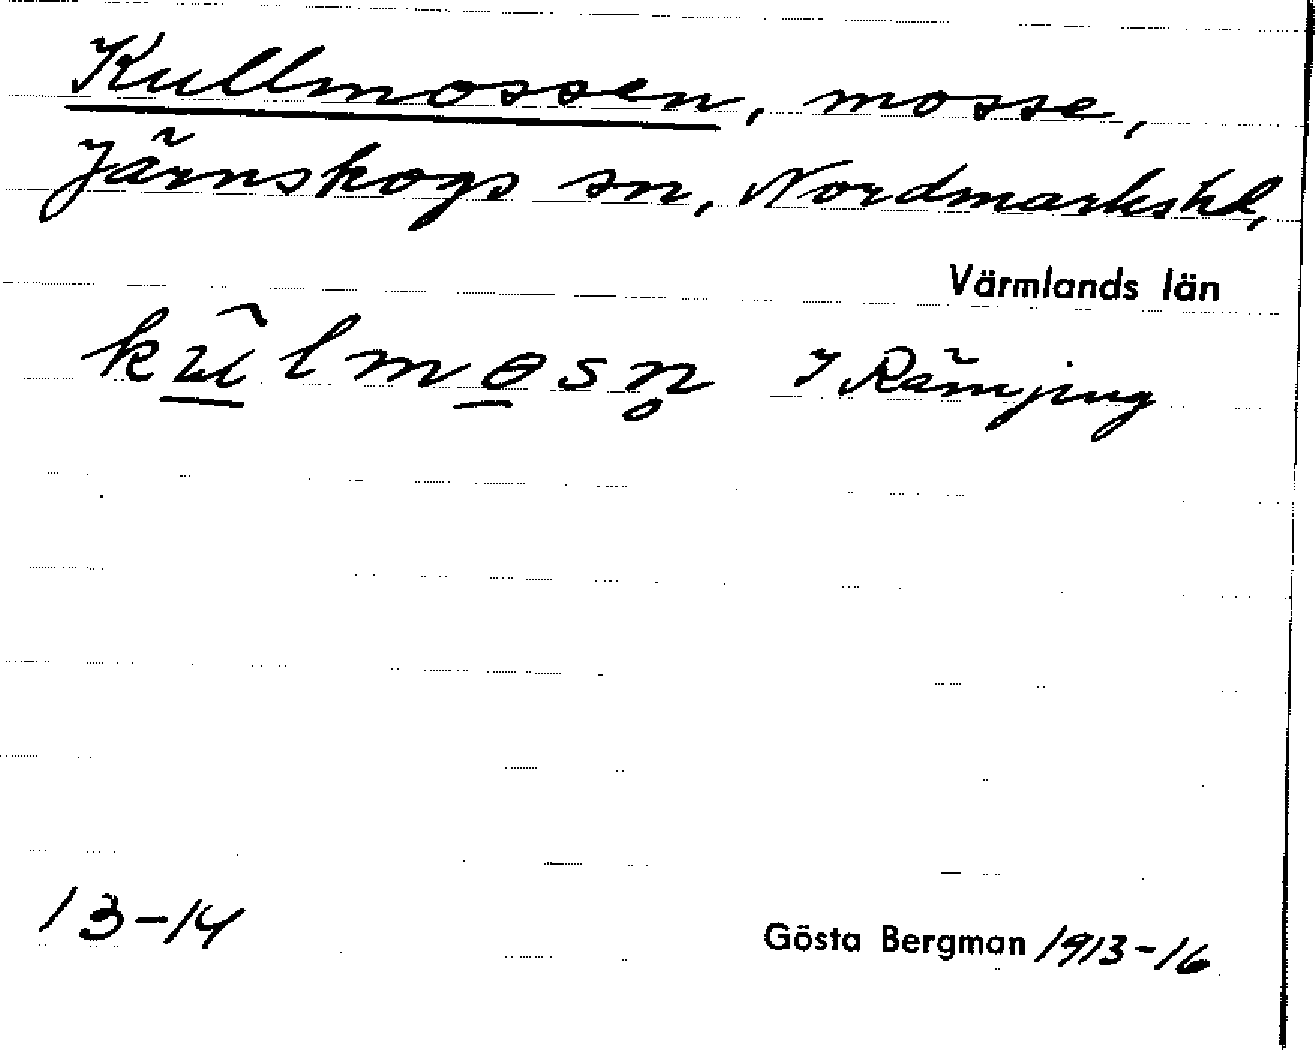 Kullmossen, mosse,
Järnskogs sn, Nordmarks hd,
Värmlands län
I Rämjing
13-14
Gösta Bergman 1913-16